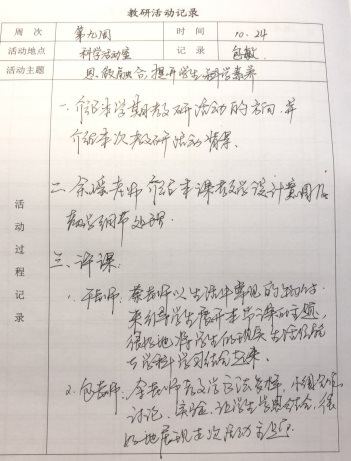 教研活动记录
周次 第九周 时间 10.24
活动地点 科学活动室 记录 包敏
活动主题 思做融合,提升学生科学素养
活动过程记录
一、介绍本学期教研活动的方向,并
介绍本次教研活动情录。
二、余瑶老师介绍本课教学设计意图及
教学细节处理。
三、评课:
1、于老师:蔡老师以生活中常见的生物的
来引导学生展开本节课的主题,
很好地将学生的认知与生活经验
与学科学习结合起来。
2、包老师:余老师教学方法多样,小组合作
讨论、实验、让学生学思结合,很
好地展现本次活动主题。